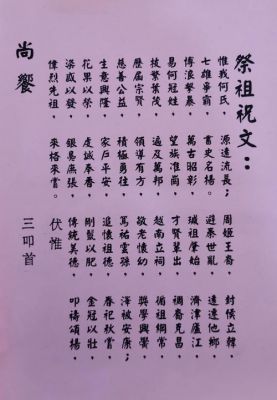 祭祖祝文：
惟我何氏，源遠流長；周姬王裔，封侯立韓，
七雄爭霸，書史名揚。避秦世亂，遠遠他鄉
博浪擊暴，萬古昭彰，瑊祖肇始，濟津廬江
易何冠姓，望族淮崗，才賢輩出，裔克昌
枝繁葉茂，遍及萬邦，越南立祠，循祖綱常
歷屆宗賢，領導有方，敬老懷幼，獎學興黌
慈善公益，積極勇往，篤祐雲孫，澤被安康；
生意興隆，家戶平安，追懷祖德，春祀秋嘗
花果以榮，虔誠奉香，剛鬣以肥，金冠以壯
粢盛以發，銀具燕張，傳統美德，叩禱頌揚，
偉烈先祖，來格來嘗。伏惟
尚饗 三叩首